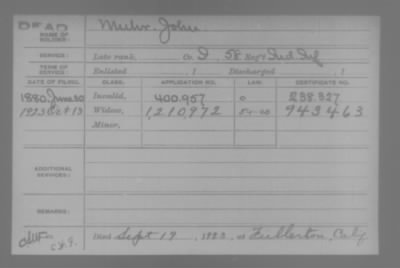 DEAD
NAME OF SOLDIER: Muhr. John
SERVICE: Late rank, Co. D, 58 Reg't Ind. Inf
TERM OF SERVICE: Enlisted , 1 Discharged , 1
DATE OF FILING. CLASS. APPLICATION NO. LAW. CERTIFICATE NO.
1880, June 30 Invalid, 400.957 238.327
1923 Oct 13 Widow, 1,210,972 943463
Minor,
ADDITIONAL SERVICES:
REMARKS:
Died Sept 19, 1923, at Fullerton, Calif